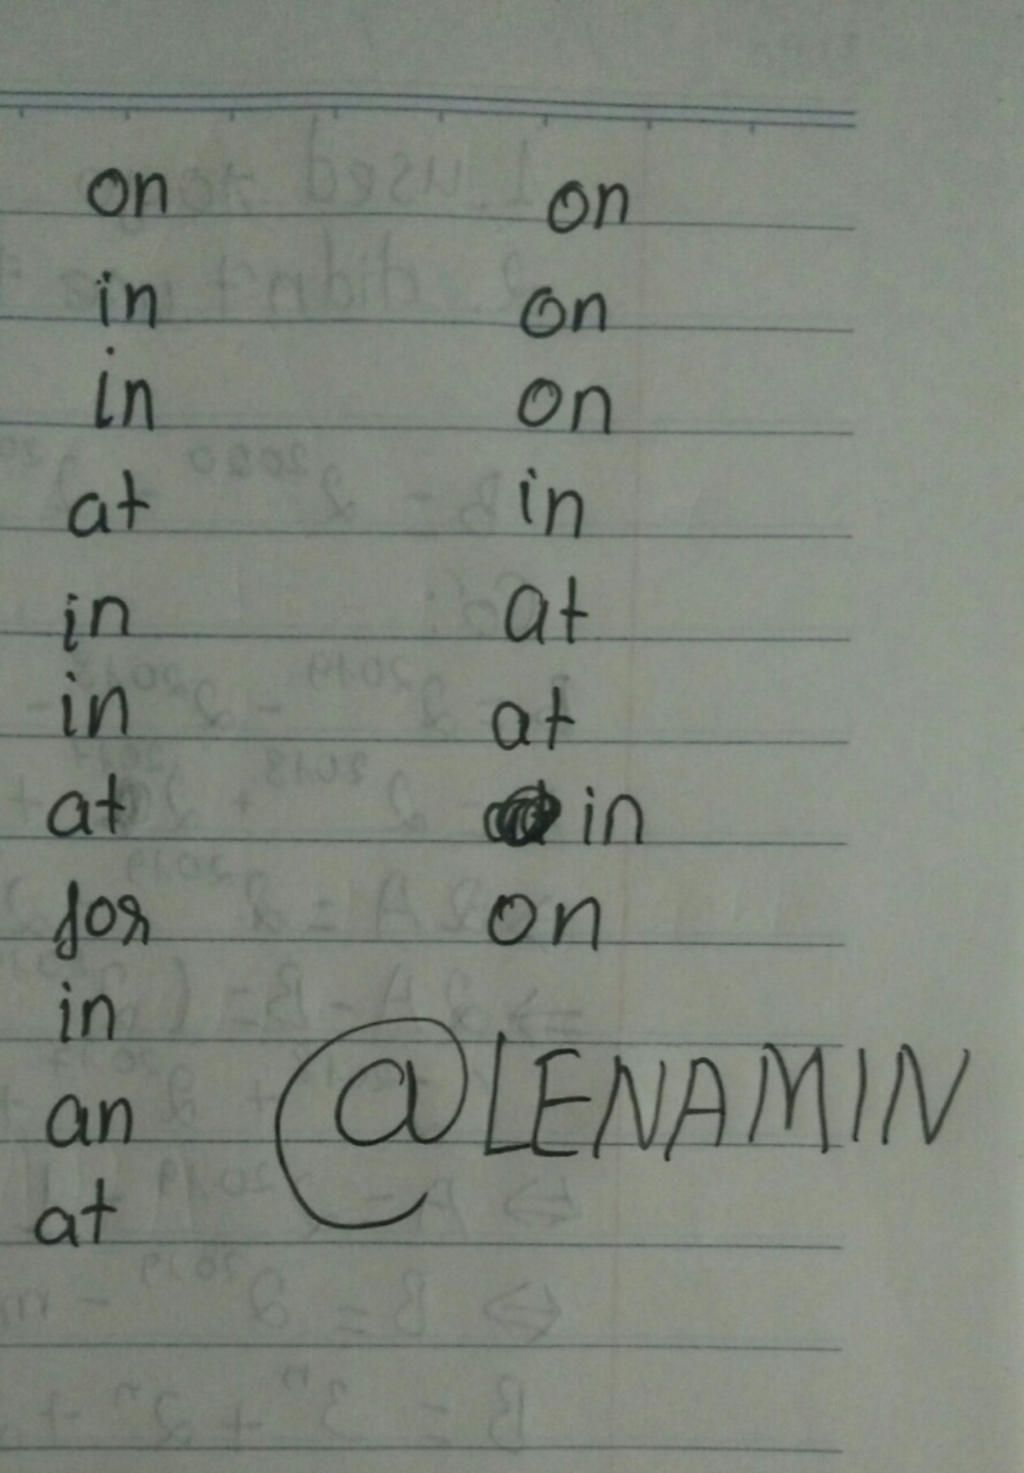 on
in
in
at
in
in
at
for
in
an
at
on
on
on
in
at
at
in
on
@LENAMIN